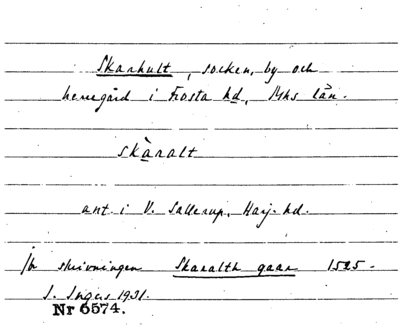 Skarhult, socken, by och
herregård i Frosta hd, Mhs län.
skàralt
ant. i V. Sallerup, Harj. hd.
jfr skrivningen Skaralth gaar 1525.
I. Ingers 1931.
Nr 6574.